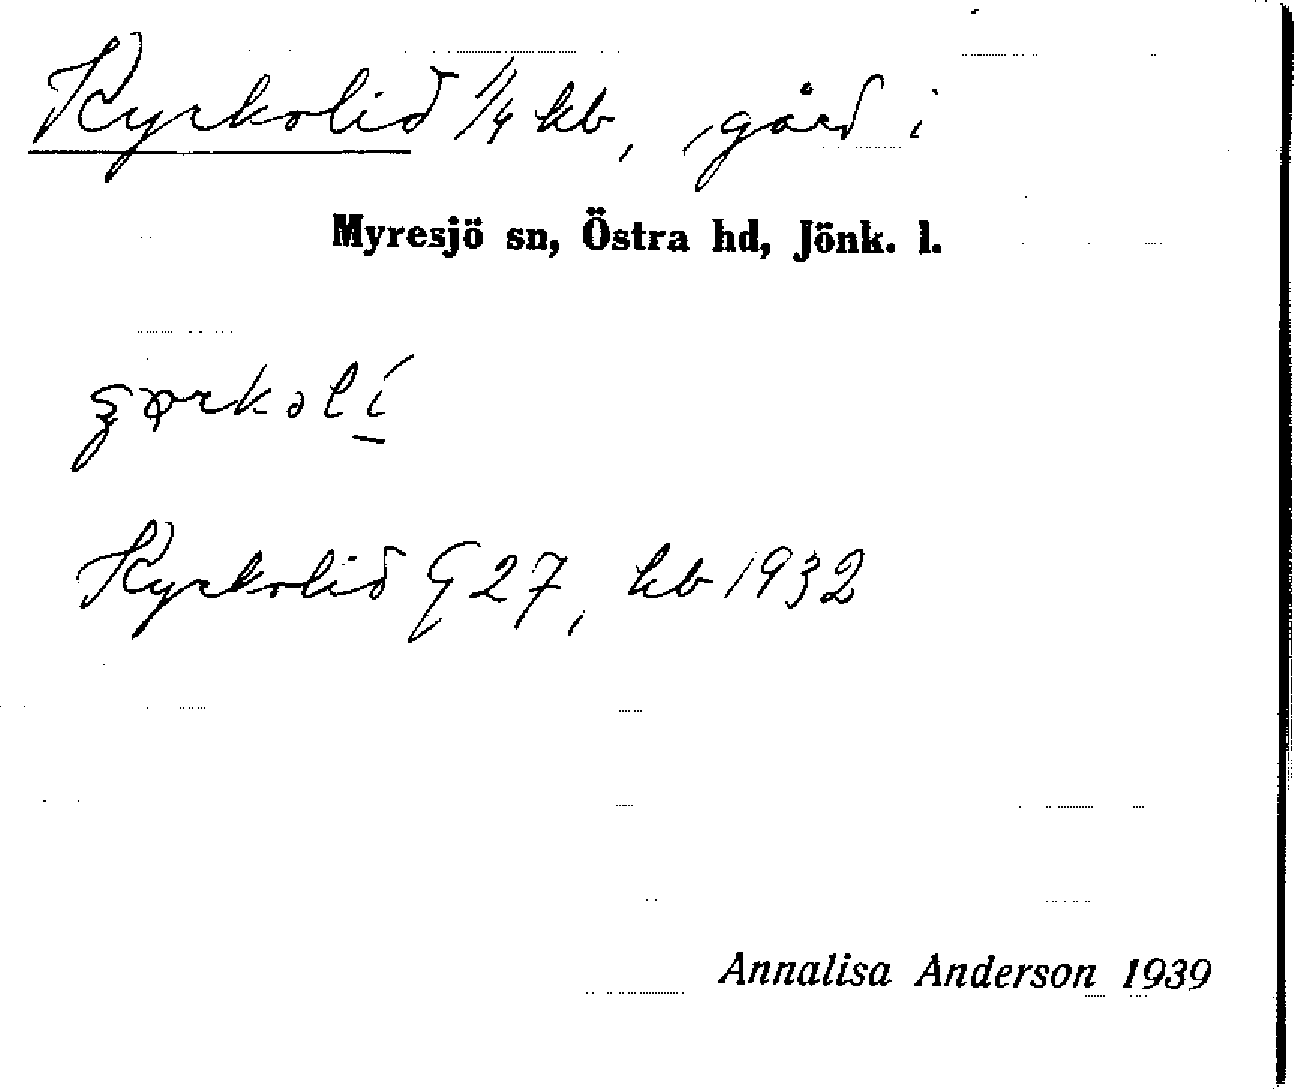 Kyrkolid 1/4 kb, gård i
Myresjö sn, Östra hd, Jönk. l.
Kyrkolid G 27, kb 1932
Annalisa Anderson 1939